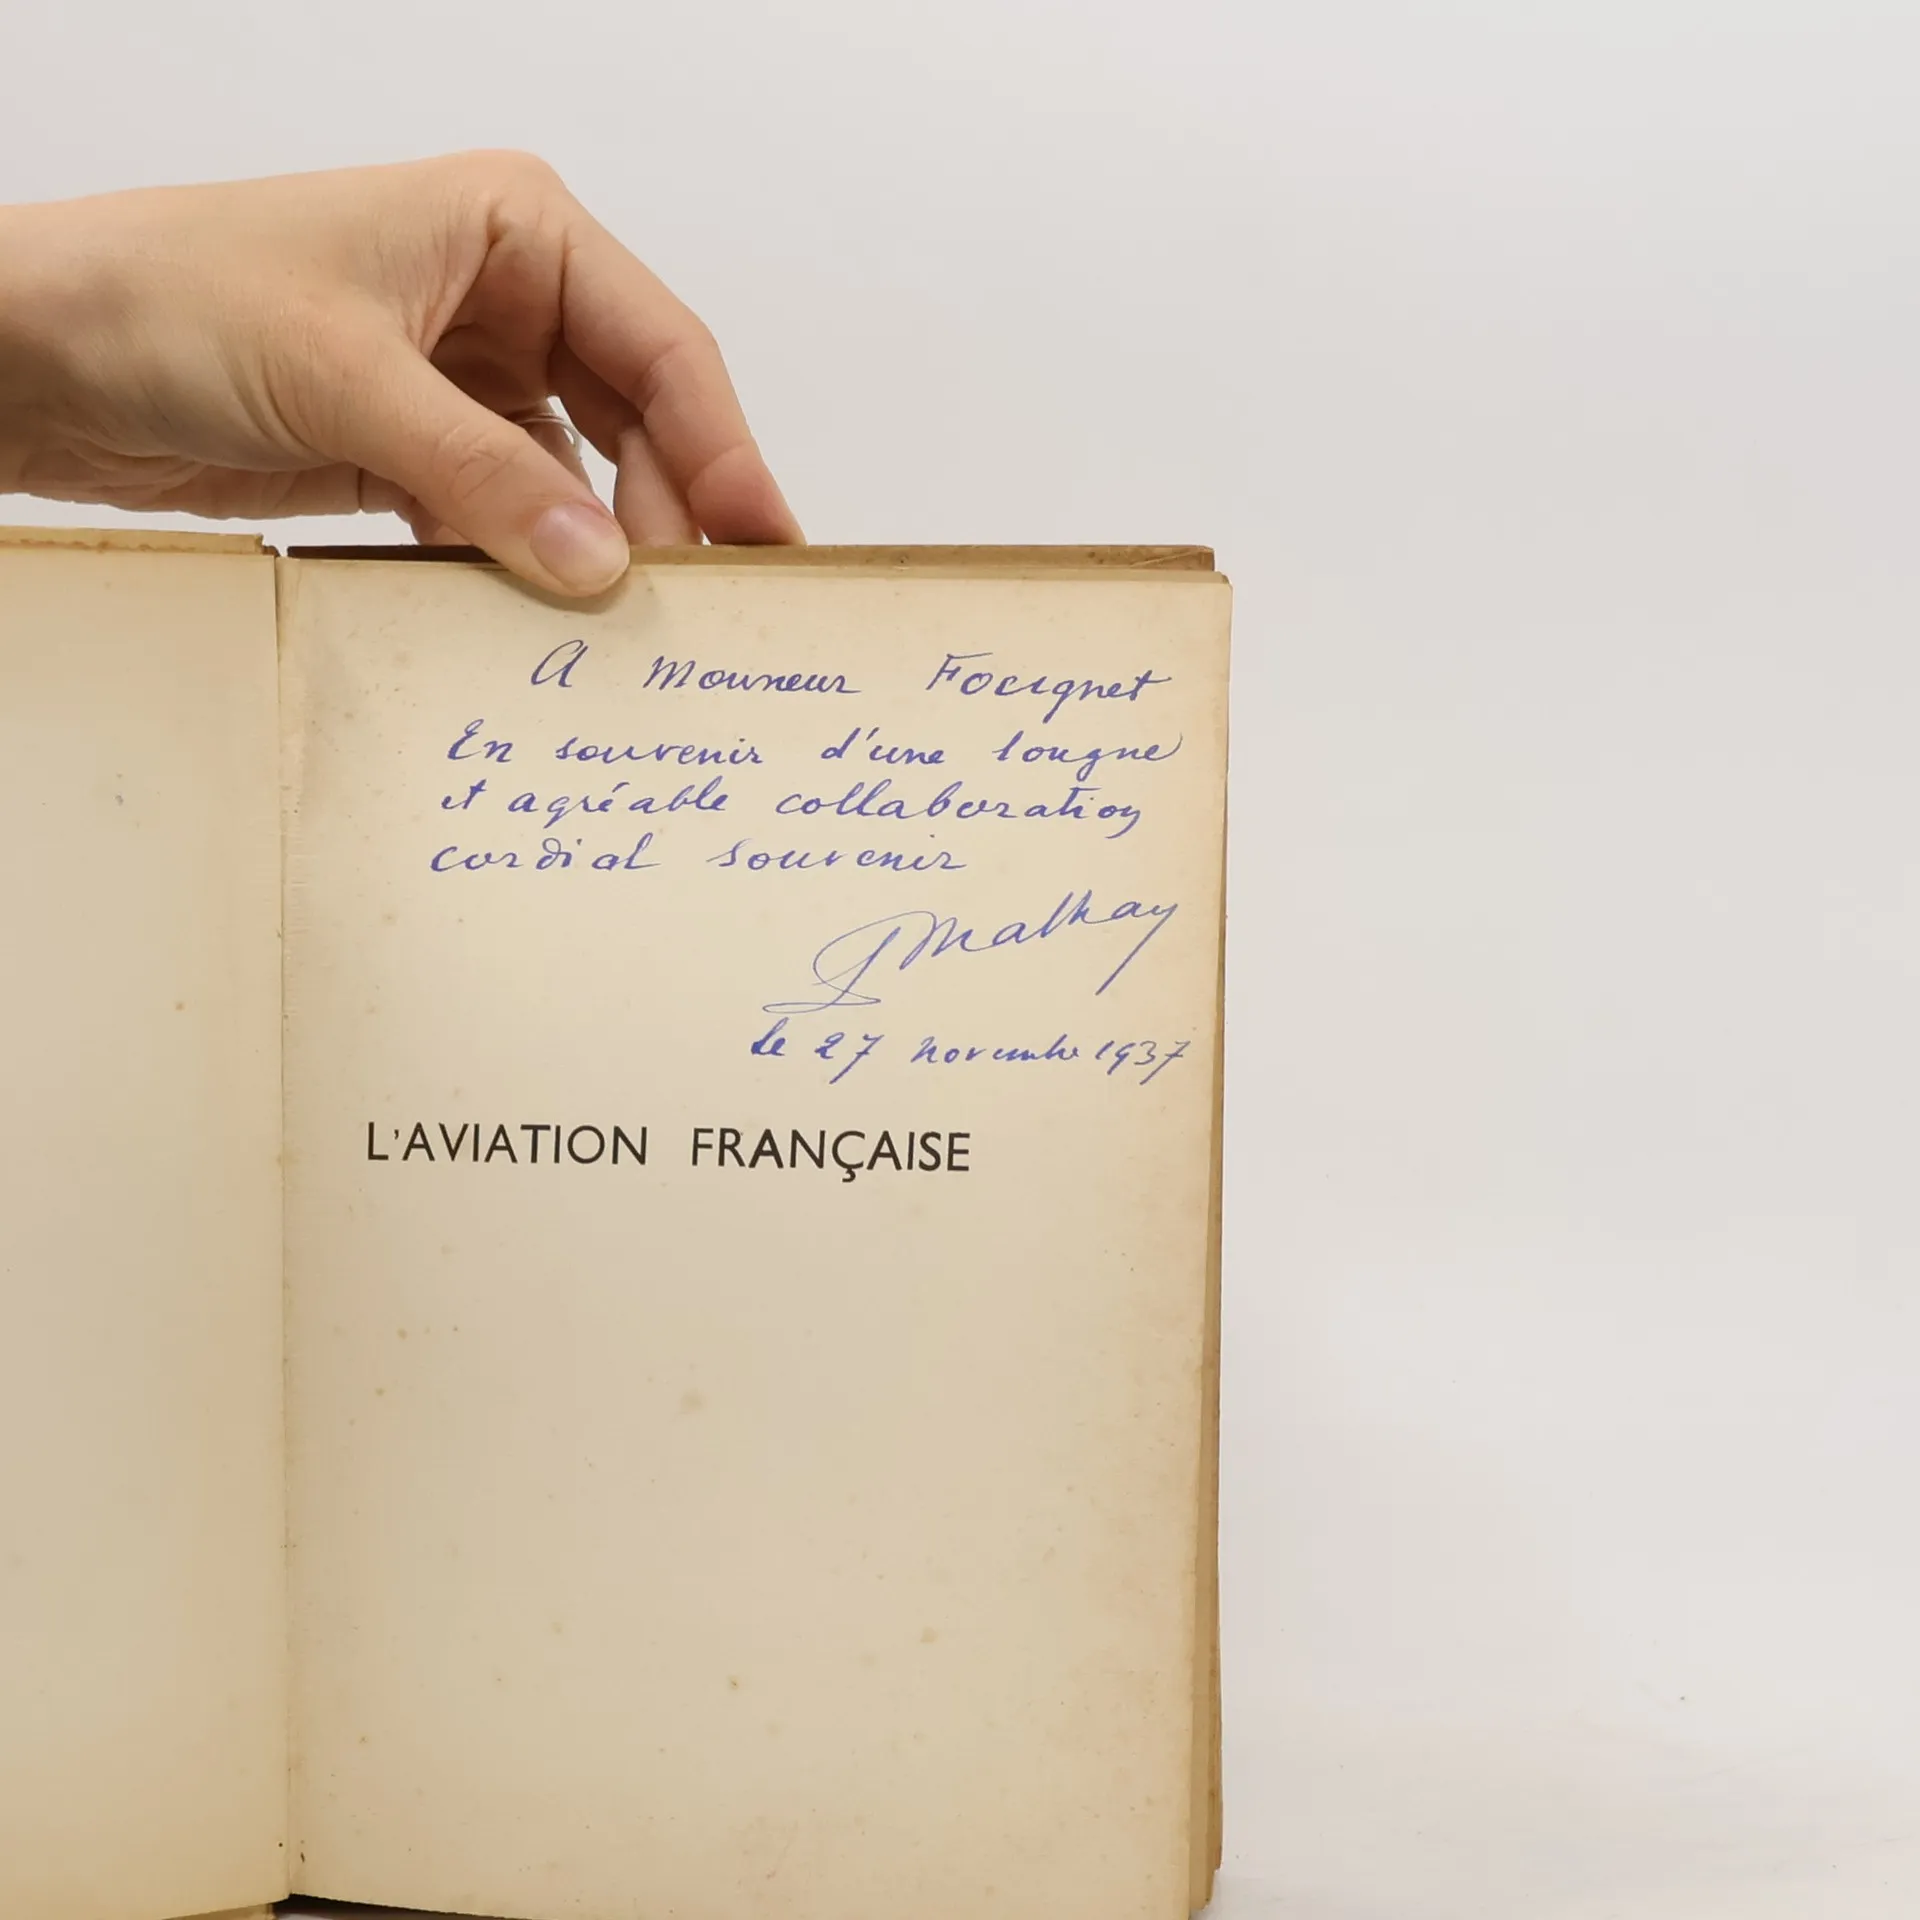 A Monsieur Focignet
En souvenir d'une longue
et agréable collaboration
cordial souvenir
Mathay
le 27 novembre 1937
L'AVIATION FRANÇAISE